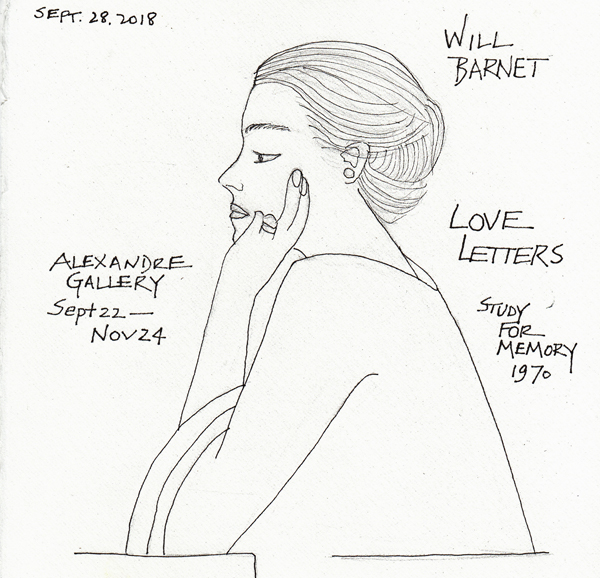 SEPT. 28, 2018
WILL
BARNET
LOVE
LETTERS
ALEXANDRE
GALLERY
Sept 22 —
Nov 24
STUDY
FOR
MEMORY
1970